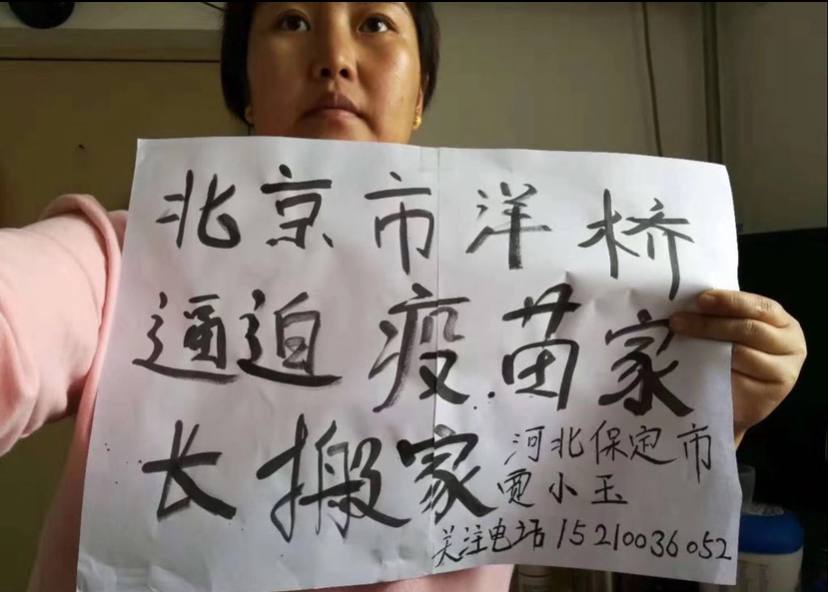 北京市洋桥
逼迫疫苗家
长搬家
河北保定市
贾小玉
关注电话15210036052